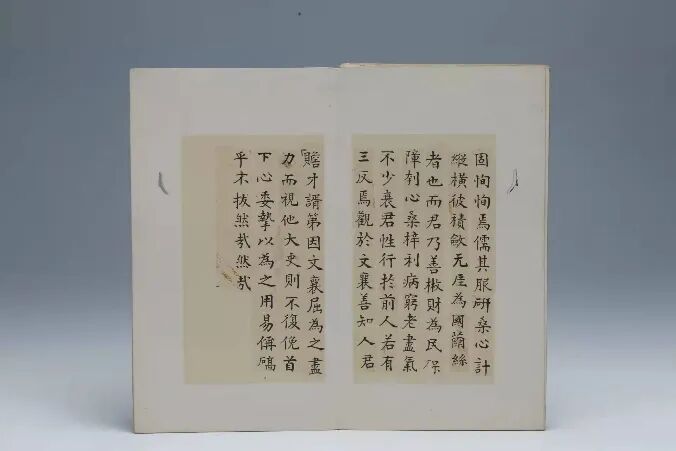 固恂恂焉儒其服研桑心計
縱橫彼積斂无厓為國蘭絲
者也而君乃善散財為民保
障刳心桑梓利病窮老盡氣
不少衰君性行於前人若有
三反焉觀於文襄善知人君
贍才諝第因文襄屈為之盡
力而視他大吏則不復俛首
下心委摯以為之用易儕碻
乎不拔然㢤然㢤